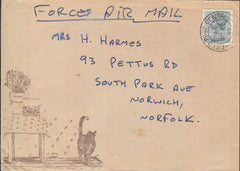 FORCES AIR MAIL
MRS H. HARMES
93 PETTUS RD
SOUTH PARK AVE
NORWICH,
NORFOLK.